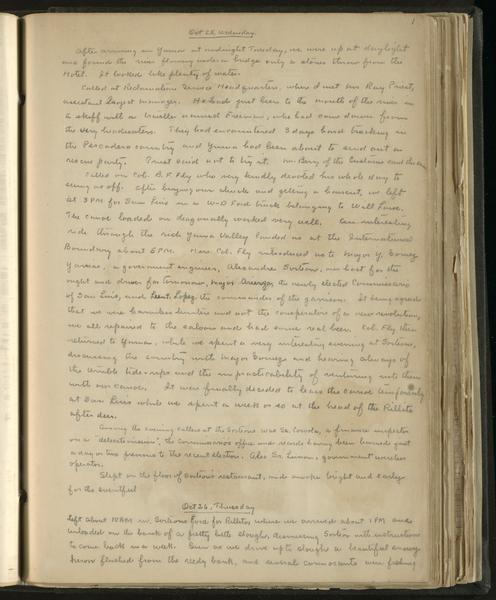 1
Oct 25, Wednesday.
After arriving in Yuma at midnight Tuesday, we were up at daylight
and found the river flowing under a bridge only a stones throw from the
Hotel. It looked like plenty of water.
Called at Reclamation Service Headquarters, where I met Mr Ray Priest,
assistant project manager. He had just been to the mouth of the river in
a skiff with a traveller named Freeman, who had come down from
the very headwaters. They had encountered 3 days hard tracking in
the Pescadero country and Yuma had been about to send out a
rescue party. Priest said not to try it. Mr. Berry of the Customs said the same
Called on Col. B.F. Fly who very kindly devoted his whole day to
seeing us off. After buying our chuck and getting a license, we left
at 3 PM for San Luis in a W-D Ford truck belonging to
The canoe loaded on diagonally worked very well. An interesting
ride through the rich Yuma Valley landed us at the International
Boundary about 5 PM. Here Col. Fly introduced us to Mayor Y. Gomez
a government engineer, Alexandro Sortoeo, our host for the
night and driver for tomorrow, Mayor the newly elected Commissario
of San Luis, and Lieut. Lopez the commander of the garrison. It being agreed
that we were harmless hunters and not the conspirators of a new revolution,
we all repaired to the saloons and had some real beer. Col. Fly then
returned to Yuma, while we spent a very interesting evening at Sortoeos,
discussing the country with Mayor Gomez and hearing always of
the terrible tide-rips and the impracticability of venturing into them
with our canoe. It was finally decided to leave the canoe temporarily
at San Luis while we spent a week or so at the head of the Rillito
after deer.
Among the evening callers at the Sortoeos was Sr. a finance inspector
on a "delicate mission", the Commissarios office and records having been burned just
a day or two previous to the recent election. Also Sr. government wireless
operator.
Slept on the floor of Sortoeos restaurant, and awoke bright and early
for the eventful
Oct 26, Thursday
Left about 10 AM in Sortoeos Ford for Rillitos where we arrived about 1 PM and
unloaded on the bank of a pretty little slough, dismissing Sortoeo with instructions
to come back in a week. Even as we drove up to slough a beautiful snowy
heron flushed from the reedy bank, and several cormorants were fishing